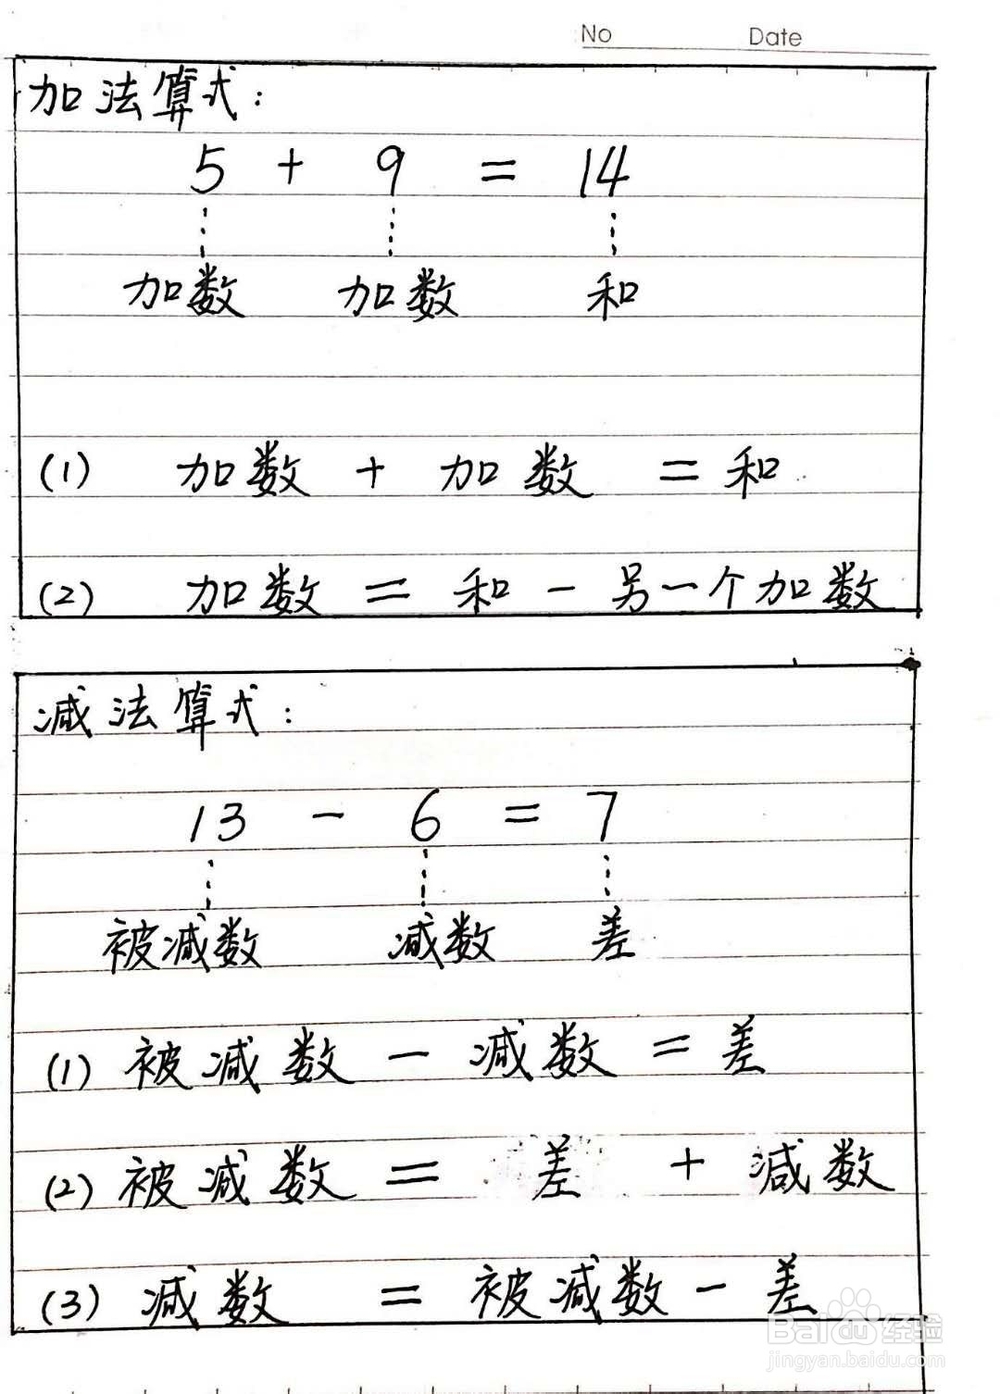 No Date
加法算式：
5 + 9 = 14
加数 加数 和
(1) 加数 + 加数 = 和
(2) 加数 = 和 - 另一个加数
减法算式：
13 - 6 = 7
被减数 减数 差
(1) 被减数 - 减数 = 差
(2) 被减数 = 差 + 减数
(3) 减数 = 被减数 - 差
Baidu经验
jingyan.baidu.com